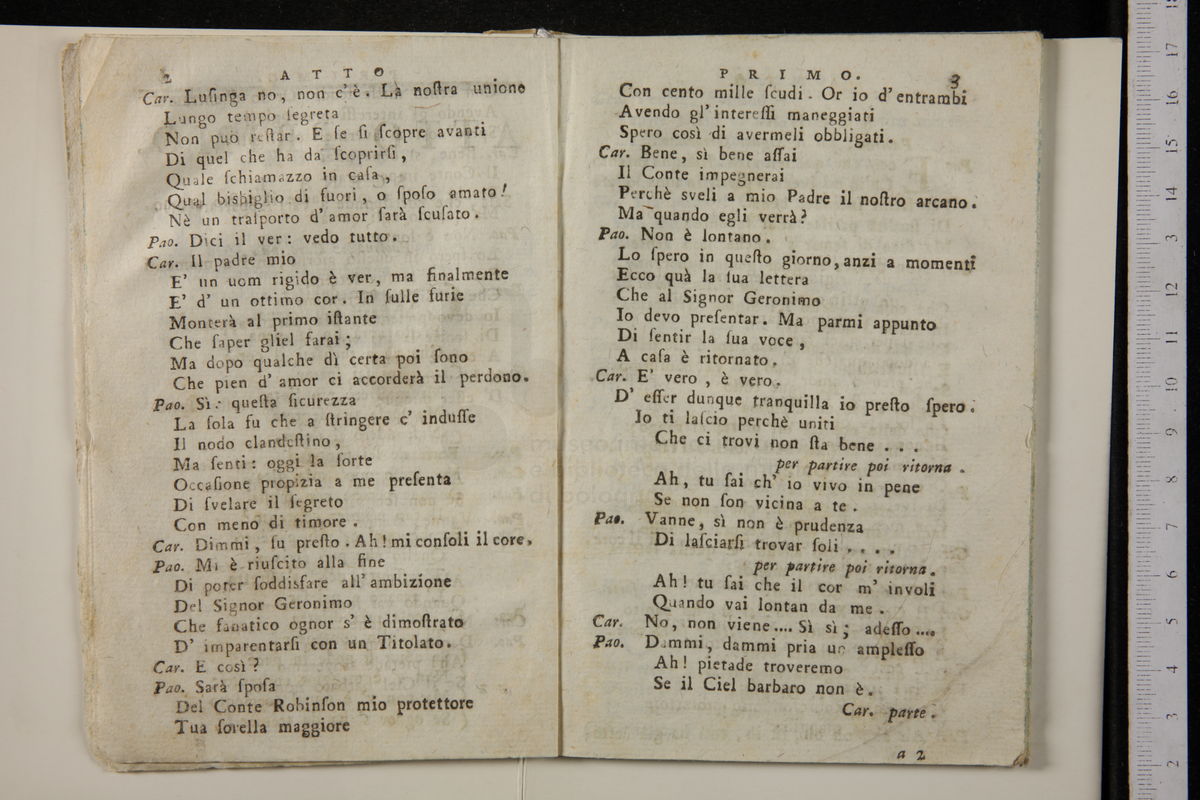 2 ATTO
Car. Luſinga no, non c'è. La noſtra unione
Lungo tempo ſegreta
Non può reſtar. E ſe ſi ſcopre avanti
Di quel che ha da ſcoprirſi,
Quale ſchiamazzo in caſa,
Qual bisbiglio di fuori, o ſpoſo amato!
Nè un traſporto d'amor ſarà ſcuſato.
Pao. Dici il ver: vedo tutto.
Car. Il padre mio
E' un uom rigido è ver, ma finalmente
E' d' un ottimo cor. In ſulle furie
Monterà al primo iſtante
Che ſaper gliel farai;
Ma dopo qualche dì certa poi ſono
Che pien d' amor ci accorderà il perdono.
Pao. Sì: queſta ſicurezza
La ſola fu che a ſtringere c' induſſe
Il nodo clandeſtino,
Ma ſenti: oggi la ſorte
Occaſione propizia a me preſenta
Di ſvelare il ſegreto
Con meno di timore.
Car. Dimmi, ſu preſto. Ah! mi conſoli il core.
Pao. Mi è riuſcito alla fine
Di poter ſoddisfare all'ambizione
Del Signor Geronimo
Che fanatico ognor s' è dimoſtrato
D' imparentarſi con un Titolato.
Car. E così?
Pao. Sarà ſpoſa
Del Conte Robinſon mio protettore
Tua ſorella maggiore
PRIMO. 3
Con cento mille ſcudi. Or io d'entrambi
Avendo gl'intereſſi maneggiati
Spero così di avermeli obbligati.
Car. Bene, sì bene aſſai
Il Conte impegnerai
Perchè sveli a mio Padre il noſtro arcano.
Ma quando egli verrà?
Pao. Non è lontano.
Lo ſpero in queſto giorno, anzi a momenti
Ecco quà la ſua lettera
Che al Signor Geronimo
Io devo preſentar. Ma parmi appunto
Di ſentir la ſua voce,
A caſa è ritornato.
Car. E' vero, è vero.
D' eſſer dunque tranquilla io preſto ſpero.
Io ti laſcio perchè uniti
Che ci trovi non ſta bene . . .
per partire poi ritorna.
Ah, tu ſai ch' io vivo in pene
Se non ſon vicina a te.
Pao. Vanne, sì non è prudenza
Di laſciarſi trovar ſoli . . . .
per partire poi ritorna.
Ah! tu ſai che il cor m' involi
Quando vai lontan da me.
Car. No, non viene.... Sì sì; adeſſo....
Pao. Dammi, dammi pria un ampleſſo
Ah! pietade troveremo
Se il Ciel barbaro non è.
Car. parte.
a 2